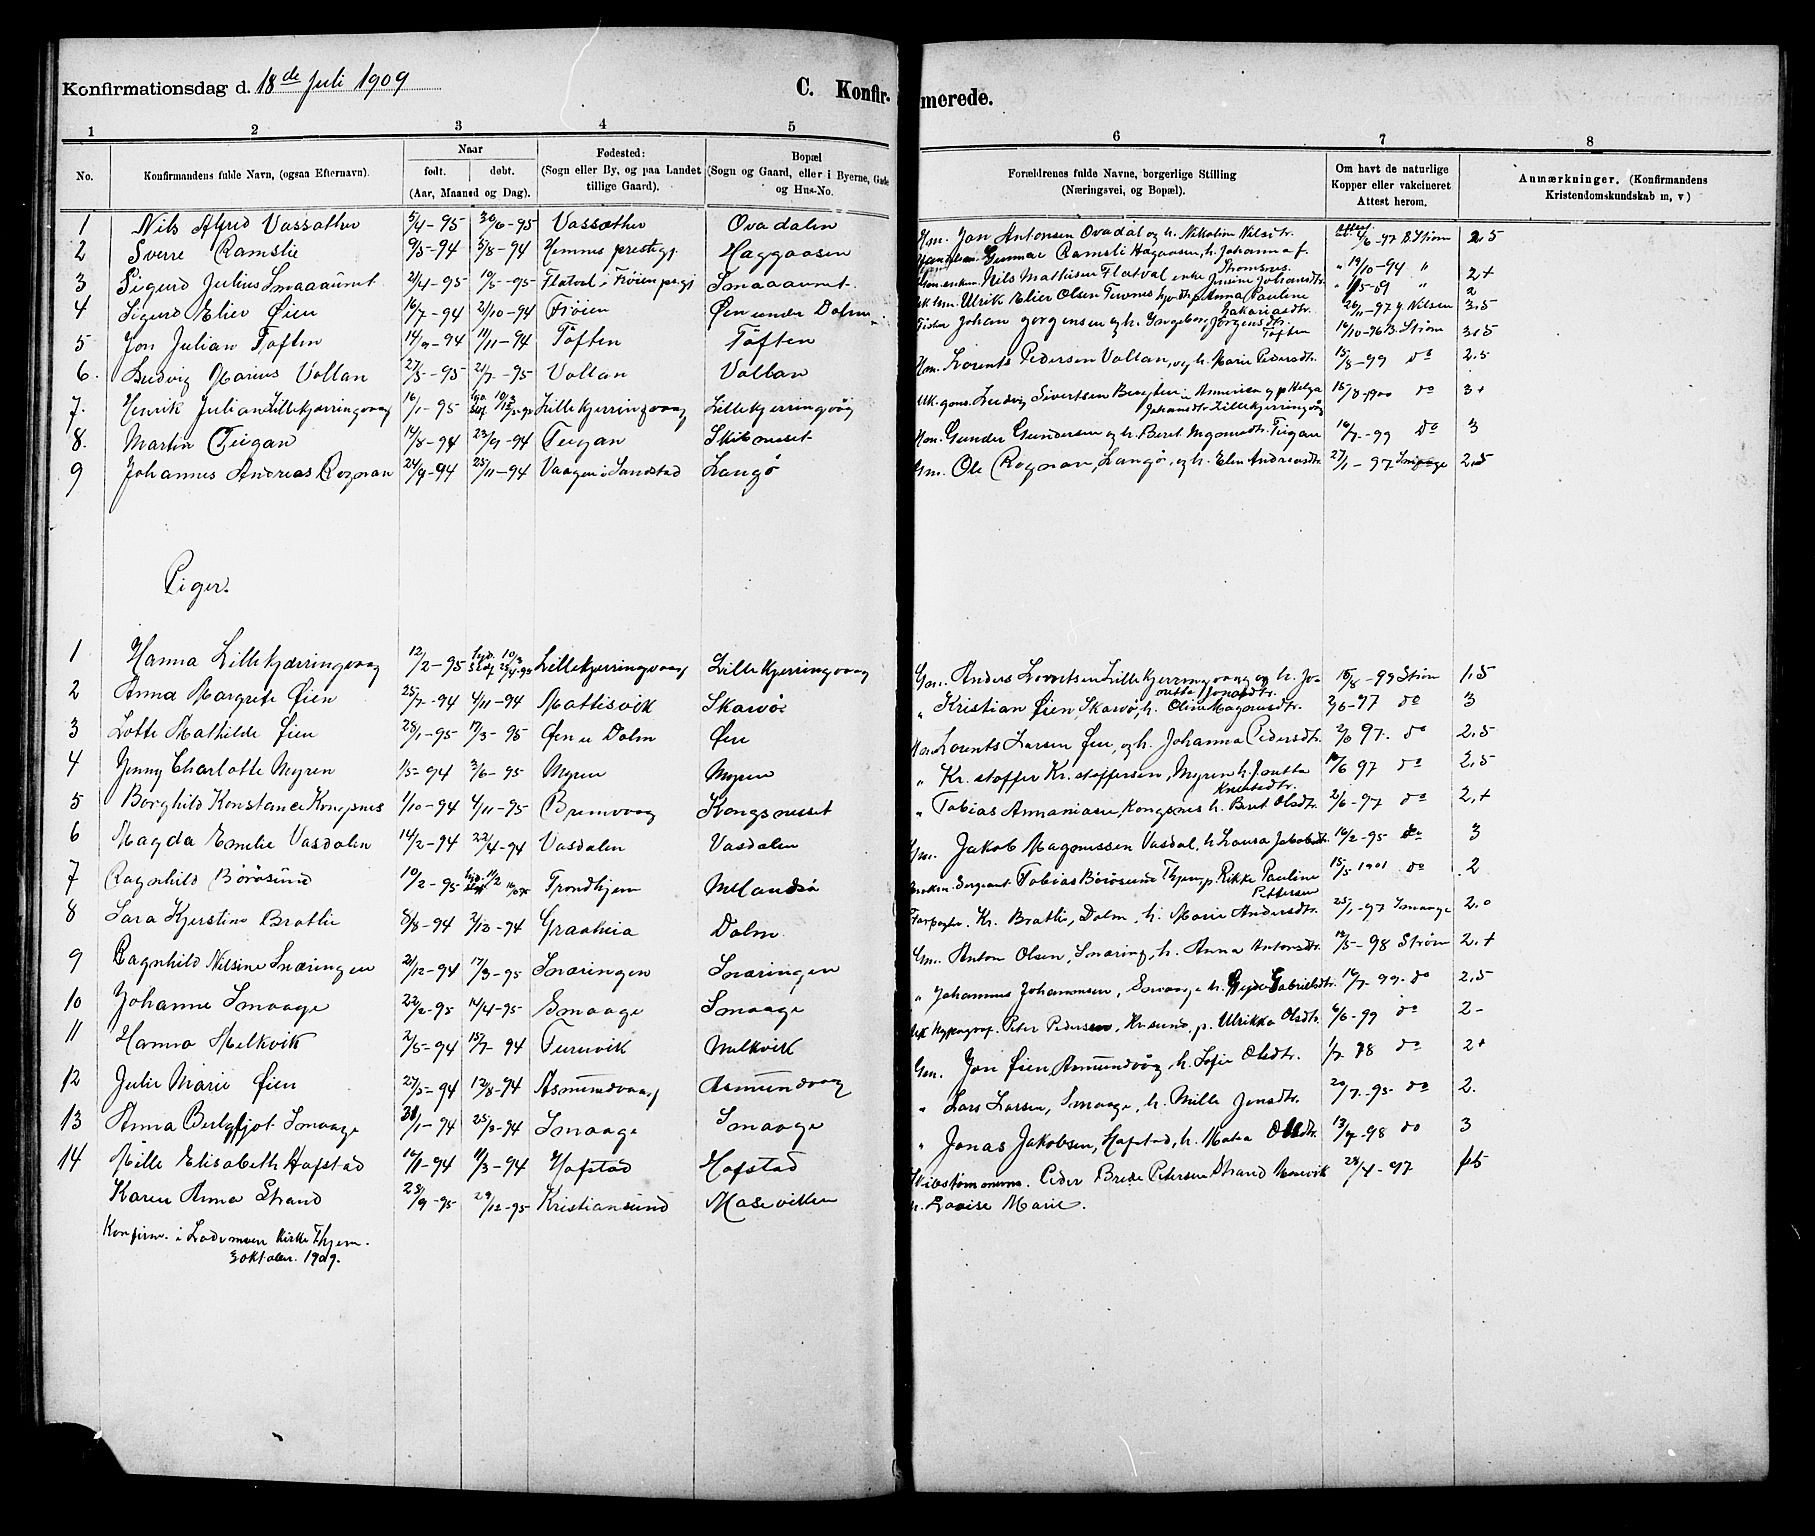 Konfirmationsdag d. 18de Juli 1909
C. Konfirmerede.
1 2 3 4 5 6 7 8
No.
Konfirmandens fulde Navn, (ogsaa Efternavn).
Naar
født. døbt.
(Aar, Maaned og Dag).
Fødested:
(Sogn eller By, og paa Landet
tillige Gaard).
Bopæl
(Sogn og Gaard, eller i Byerne, Gade
og Hus-No.
Forældrenes fulde Navne, borgerlige Stilling
(Næringsvei, og Bopæl).
Om havt de naturlige
Kopper eller vakcineret
Attest herom.
Anmærkninger. (Konfirmandens
Kristendomskundskab m, v)
1 Nils Alfred Vassæther 5/4-95 30/6-95 Vassæther Ovadalen Gm. Jon Antonsen Ovadal og h. Nekolin Nilsdtr. 4/6-97 B. Strøm 2.5
2 Sverre Ramslie 9/5-94 5/8-94 Hemnes prestegj Haggaasen Gunnar Ramsli Hagaasen, h. Johanna f. Stromsnes. 19/10-94 " 2+
3 Sigurd Julius Smaaaunet 21/4-95 19/5-95 Flatval i Frøien pgj Smaaaunet. Nils Mathisen Flatval enke Jensine Johansdtr. 2
4 Sigurd Elier Øien 16/7-94 21/10-94 Frøien Øen under Dolm Uk Gm. Ulrik Elier Olsen Anna Pauline Zakariasdtr. 26/11-97 J Nilsen 3.5
5 Jon Julian Tøften 14/9-94 11/11-94 Tøften Tøften Fisker Johan Jørgensen og h. Ingeborg Jørgensdtr. Tøften 16/10-96 B. Strøm 3.5
6. Ludvig Marius Vollan 27/5-95 21/7-95 Vollan Vollan Gm. Lorents Pedersen Vollan, og h. Marie Pedersdtr. 15/8-99 do 2.5
7. Henrik Julian Lillekjærringvaag 16/1-95 Lillekjerringvaag Lillekjerringvåg Uk. gm. Ludvig Sivertsen Amerika og p Helga Johansdtr Lillekjerringvåg 15/8-1900 do 3+
8. Martin Teigan 14/8-94 23/9-94 Teigan Skibneset Gm. Gunder Gundersen og h. Beret Mogensdtr. Teigan 16/7-99 do 3
9 Johannes Andreas Rognan 24/9-94 25/11-94 Vaagen i Sandstad Langø Gm. Ole Rognan, Langø, og h. Elen Andreasdtr. 27/1-97 Smaage 2.5
Piger.
1 Hanna Lillekjærringvaag 12/2-95 Lillekjerringvaag Lillekjerringvaag Gm. Anders Lorentsen Lillekjerringvaag og h. Jonetta Jonasdtr. 15/8-99 Strøm 1.5
2 Anna Margrete Øien 25/7-94 4/11-94 Mattisvik Skarvø " Kristian Øien, Skarvø, h. Oline Magnusdtr. 2/6-97 do 3
3 Lotte Mathilde Øien 28/1-95 17/3-95 Øen u Dolm Øen Lorents Larsen Øen, og h. Johanna Pedersdtr. 2/6 97. do 2.5
4 Jenny Charlotte Myren 1/5-94 3/6-95 Myren Myren " Kr. stoffer Kr. stoffersen, Myren h. Jonetta Knutsdtr. 10/6 97 do 2.5
5 Borghild Konstance Kongsnes 1/10-94 4/11-95 Bremvaag Kongsnesset " Tobias Annaniasen, Kongsnes h. Beret Olsdtr. 2/6-97 do 2.+
6 Magda Emelie Vasdalen 14/2-94 22/4-94 Vasdalen Vasdalen Gm. Jakob Magnussen Vasdal, h Lovisa Jakobsdtr 16/2-95 do 3
7 Ragnhild Børøsund 10/2-95 Trondhjem Melandsø Enkem. Sergeant Tobias Børøsund Thjem, p. Rikke Pauline Pettersen 15/5 1901 do 2
8 Sara Kjerstine Brattli 8/8-94 2/12-94 Graaheia Dolm Kr. Brattli, Dolm, h. Marie Andersdtr. 25/1-97 Smaage 2.0
9 Ragnhild Nilsine Snæringen 21/12-94 17/3-95 Snæringen Snæringen Gm. Anton Olsen, Snæring, h. Anna Antonsdtr. 12/5-98 Strøm 2.+
10 Johanne Smaage 22/2-95 14/4-95 Smaage Smaage " Johannes Johannesen, Smaage h. Gabrielsdtr. 16/7-99 do 2.5
11 Hanna Melkvik 2/5-94 15/7-94 Furuvik Melkvik Uk Typograf. Peter Pedersen, Kr.sund, p. Ulrikke Olsdtr. 6/6-99 do 2-
12 Julie Marie Øien 27/5-94 12/8-94 Asmundvaag Asmundvaag Gm. Jon Øien, Asmundvåg, h. Sofie Olsdtr. 1/7 98 do 2+
13 Anna Bergljot Smaage 31/1-94 25/3-94 Smaage Smaage " Lars Larsen, Smaage, h. Mille Jonsdtr. 20/7-95 do 2.
14 Mille Elisabeth Hofstad 16/1-94 11/3-94 Hofstad Hofstad " Jonas Jakobsen, Hofstad, h. Olsdtr. 13/9-98 do 3
Karen Anna Strand 25/9-95 29/12-95 Kristiansund Maseviken Peder Brede Petersen Strand 28/4-97
h. Lovise Marie.
Konfirm. i Lademoen kirke Thjem.
3 oktober. 1909.